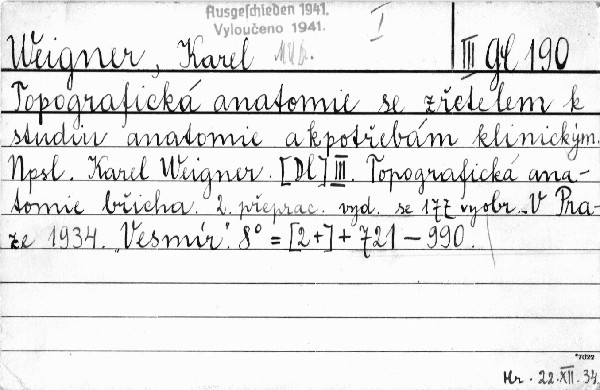 Ausgeschieden 1941.
Vyloučeno 1941.
I
Weigner, Karel
III Gf 190
Topografická anatomie se zřetelem k
studiu anatomie a k potřebám klinickým.
Npsl. Karel Weigner. [Dl] III. Topografická ana-
tomie břicha. 2. přeprac. vyd. se 177 vyobr. V Pra-
ze 1934. "Vesmír". 8° = [2+] + 721 - 990.
*7022
Hr. 22.XII.34